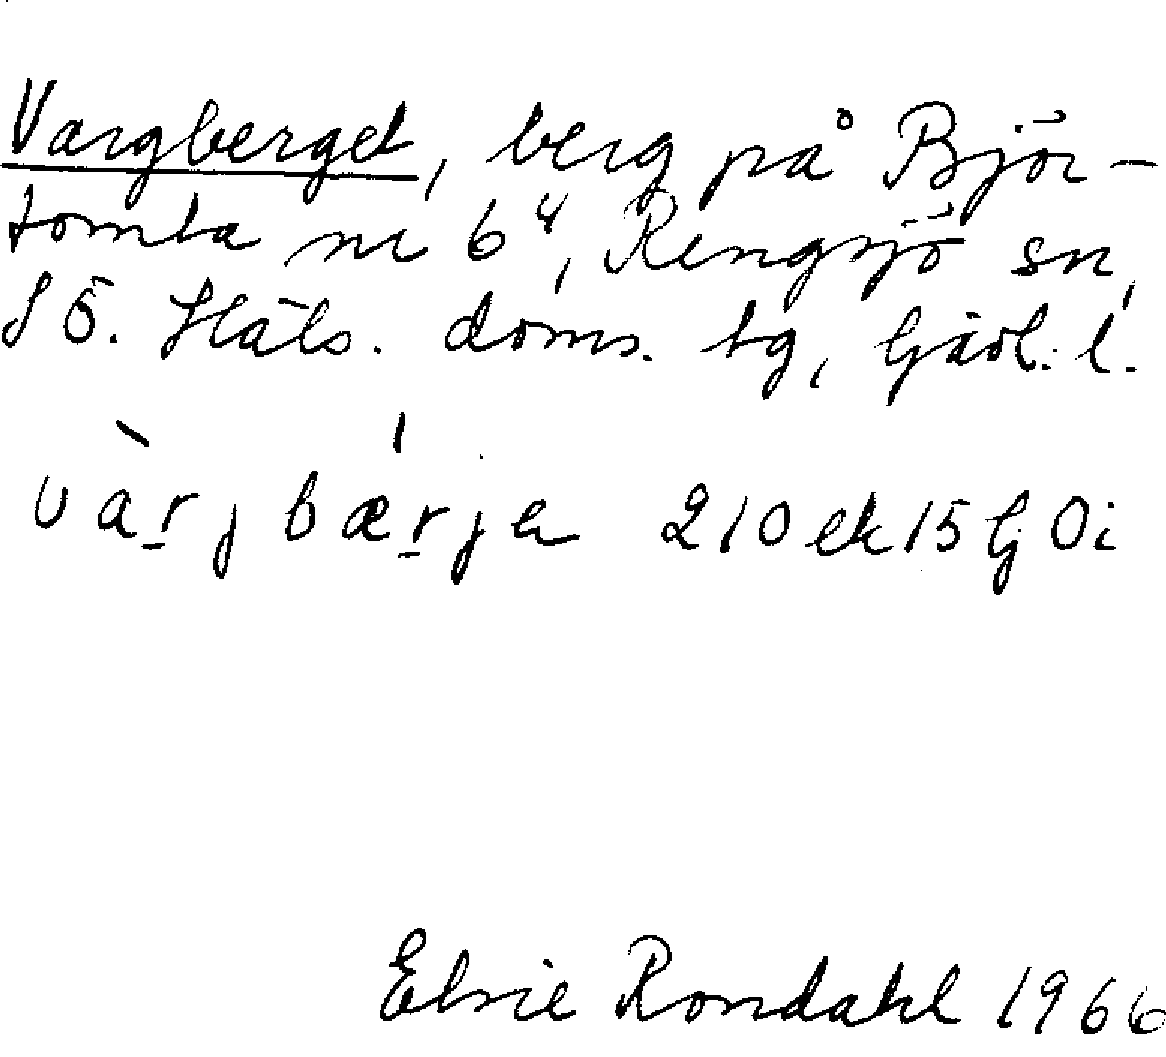 Vargberget, berg på Björ-
tomta nr 6⁴, Rengsjö sn,
SÖ. Häls. doms. tg, Gävl. l.
vàr̠j bǽr̠je 210 ek 15 Gj Oi
Elsie Rondahl 1966